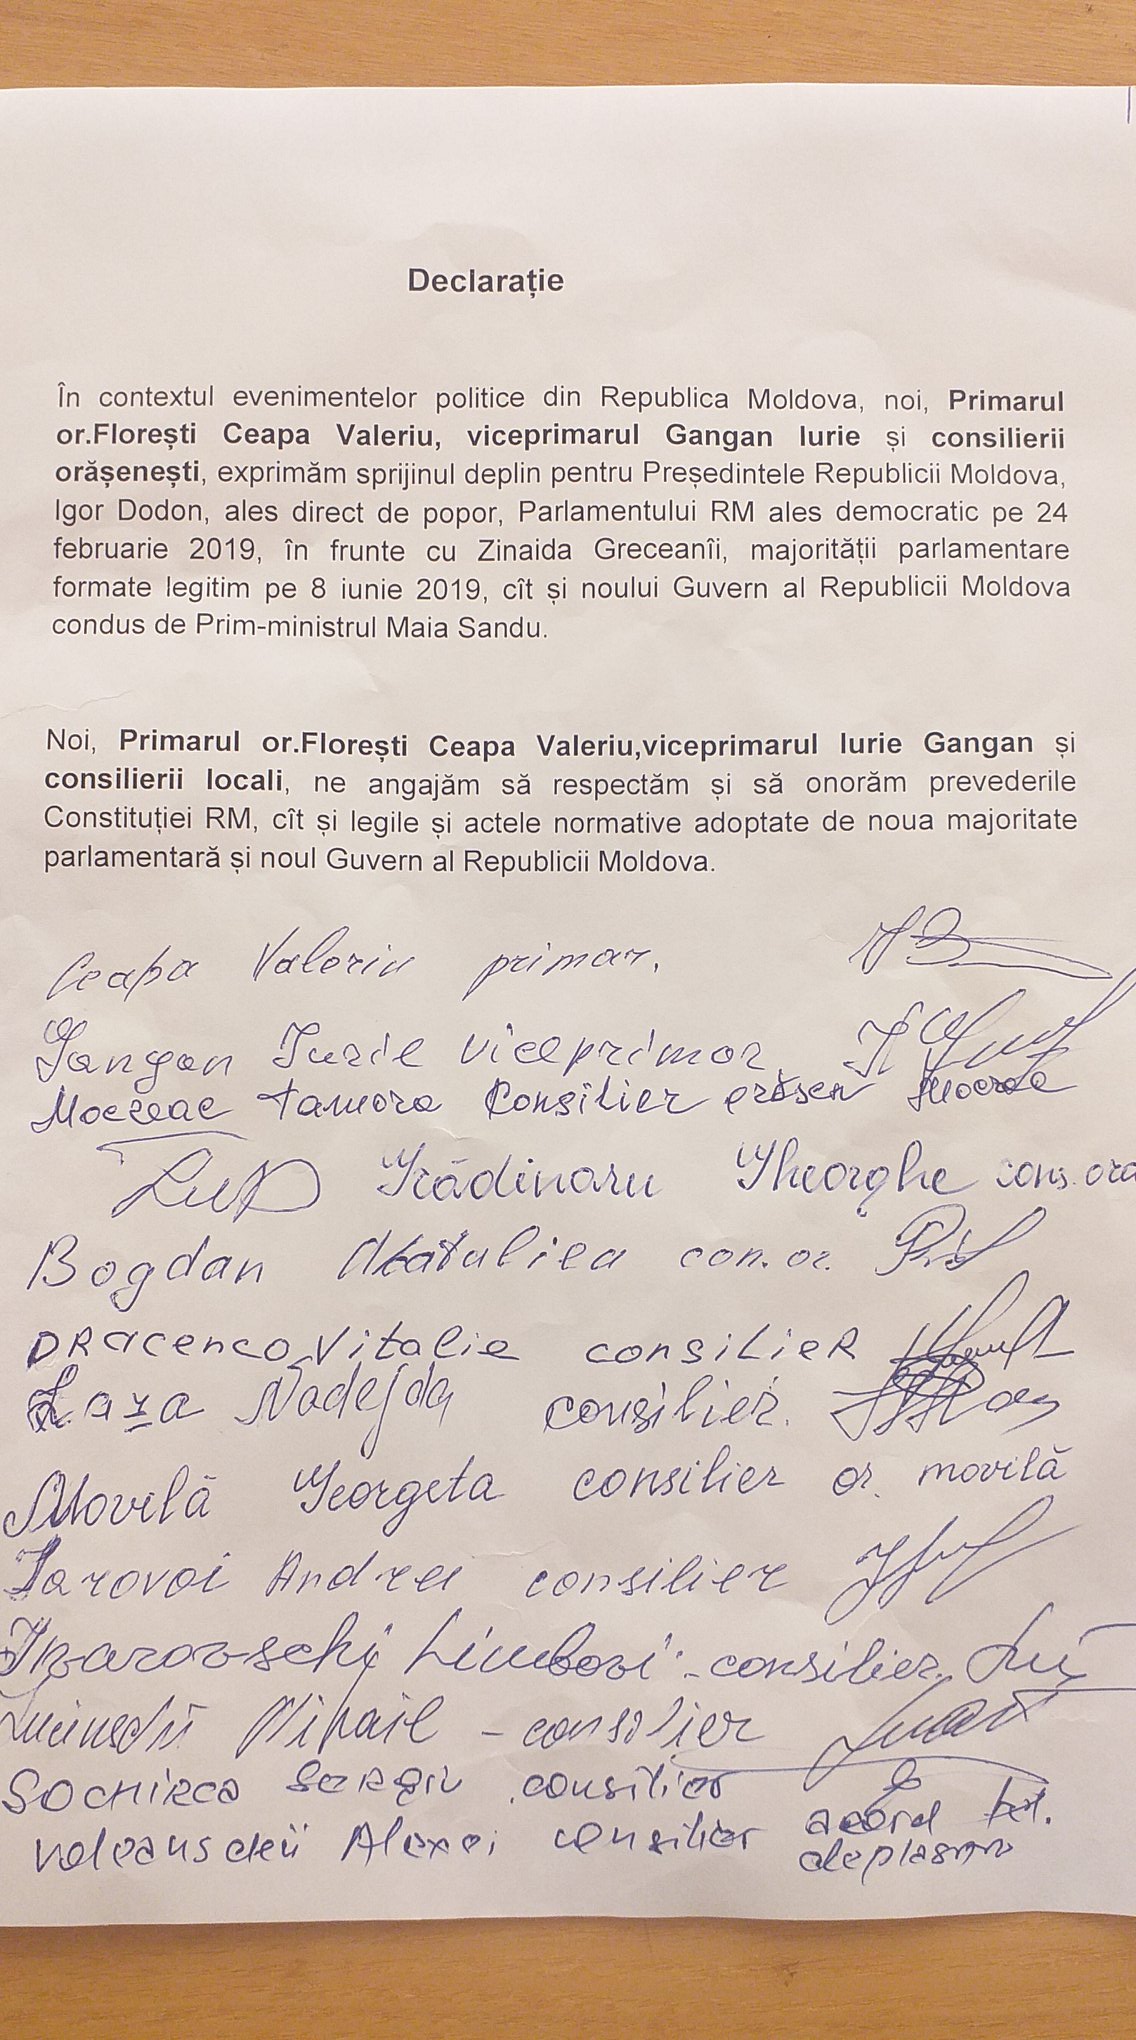 Declarație
În contextul evenimentelor politice din Republica Moldova, noi, Primarul
or.Florești Ceapa Valeriu, viceprimarul Gangan Iurie și consilierii
orășenești, exprimăm sprijinul deplin pentru Președintele Republicii Moldova,
Igor Dodon, ales direct de popor, Parlamentului RM ales democratic pe 24
februarie 2019, în frunte cu Zinaida Greceanîi, majorității parlamentare
formate legitim pe 8 iunie 2019, cît și noului Guvern al Republicii Moldova
condus de Prim-ministrul Maia Sandu.
Noi, Primarul or.Florești Ceapa Valeriu,viceprimarul Iurie Gangan și
consilierii locali, ne angajăm să respectăm și să onorăm prevederile
Constituției RM, cît și legile și actele normative adoptate de noua majoritate
parlamentară și noul Guvern al Republicii Moldova.
Ceapa Valeriu primar.
Gangan Iurie viceprimar
Tamara Consilier orășen
Grădinaru Gheorghe cons. oră
Bogdan con. or.
Dracenco Vitalie consilier
Laza Nadejda consilier.
Movilă Georgeta consilier or. movilă
Iarovoi Andrei consilier
consilier.
Mihail - consilier
Sochirca Sergiu consilier
Alexei consilier acord tel.
deplasare